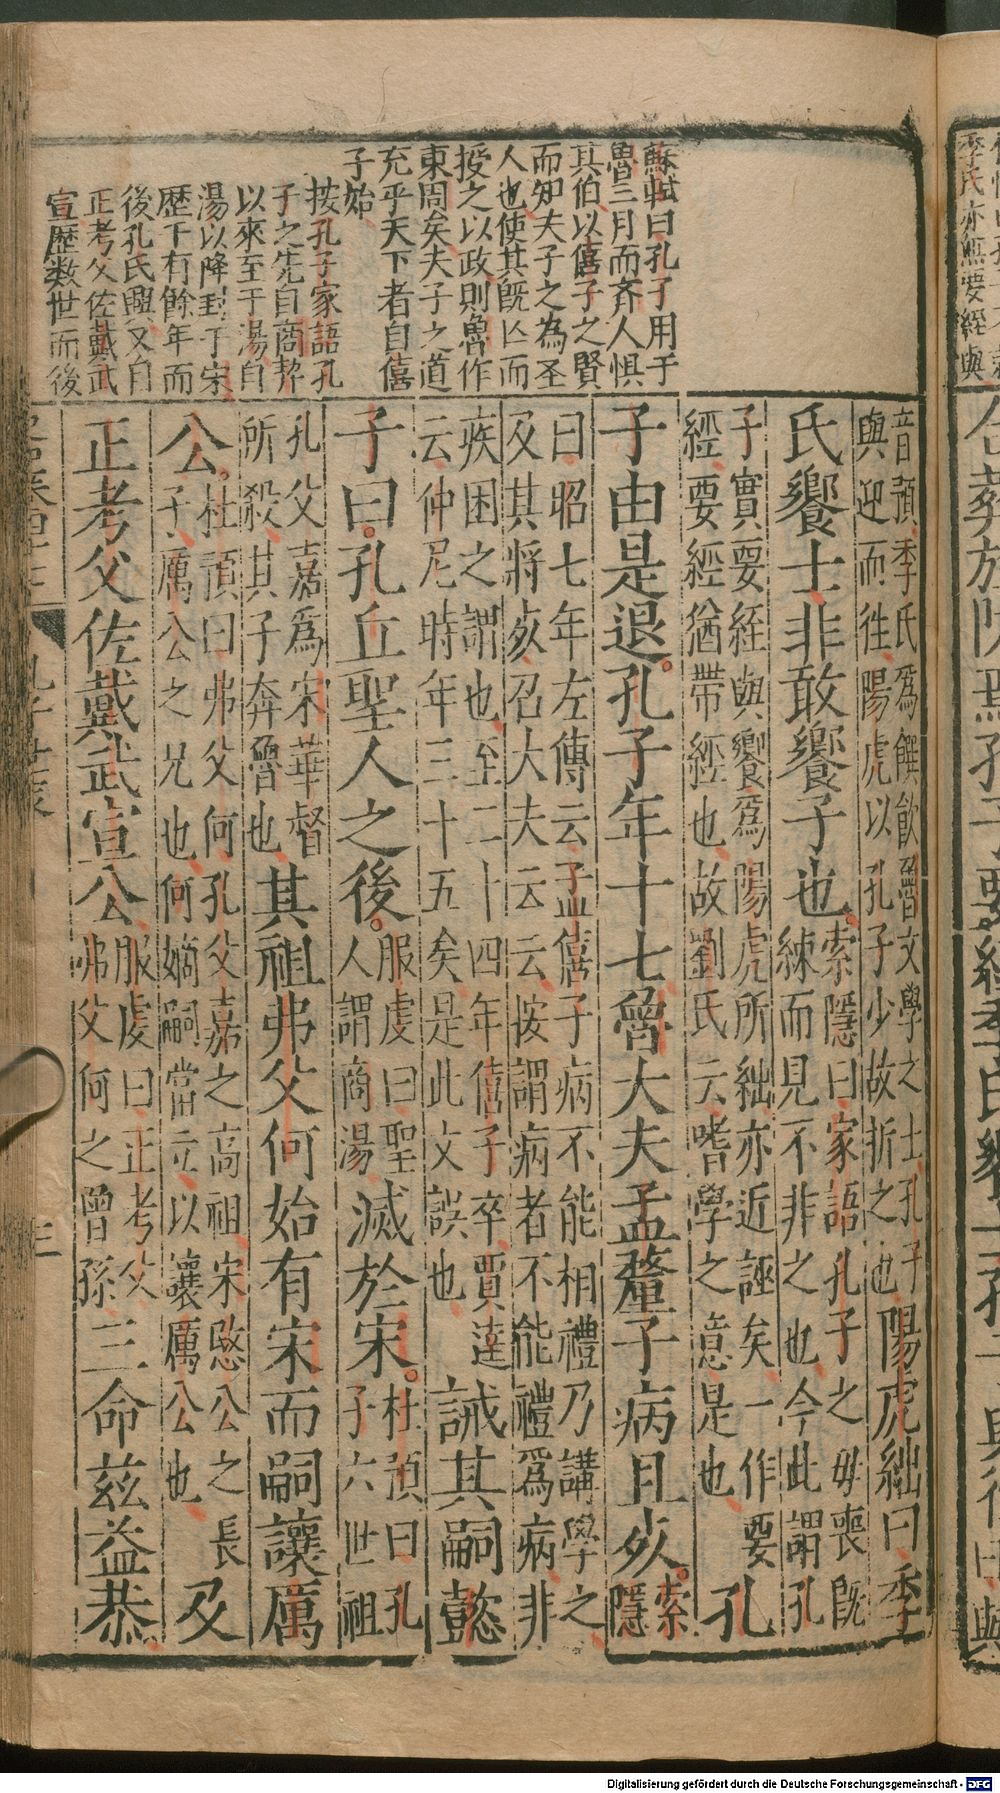 蘇軾曰孔子用于
魯三月而齊人惧
其伯以僖子之賢
而知夫子之為圣
人也使其旣亾而
授之以政則魯作
東周矣夫子之道
充乎天下者自僖
子始
按孔子家語孔
子之先自商契
以來至于湯自
湯以降封于宋
歷千有餘年而
後孔氏興又自
正考父佐戴武
宣歷数世而後
音預季氏爲饌飲魯文學之士孔子
與迎而徃陽虎以孔子少故折之也
陽虎絀曰季
氏饗士非敢饗子也
索隱曰家語孔子之毋喪旣
練而見不非之也今此謂孔
子實要絰與饗爲陽虎所絀亦近誣矣一作要
經要經猶帶經也故劉氏云嗜學之意是也
孔
子由是退孔子年十七魯大夫孟釐子病且死
索
隱
曰昭七年左傳云孟僖子病不能相禮乃講學之
及其將死召大夫云云按謂病者不能禮爲病非
疾困之謂也至二十四年僖子卒賈逵
云仲尼時年三十五矣是此文誤也
誡其嗣懿
子曰孔丘聖人之後
服虔曰聖
人謂商湯
滅於宋
杜預曰孔
子六世祖
孔父嘉爲宋華督
所殺其子奔魯也
其祖弗父何始有宋而嗣讓厲
公
杜預曰弗父何孔父嘉之高祖宋愍公之長
子厲公之兄也何嫡嗣當立以讓厲公也
及
正考父佐戴武宣公
服虔曰正考父
弗父何之曾孫
三命兹益恭
三
Digitalisierung gefördert durch die Deutsche Forschungsgemeinschaft - DFG